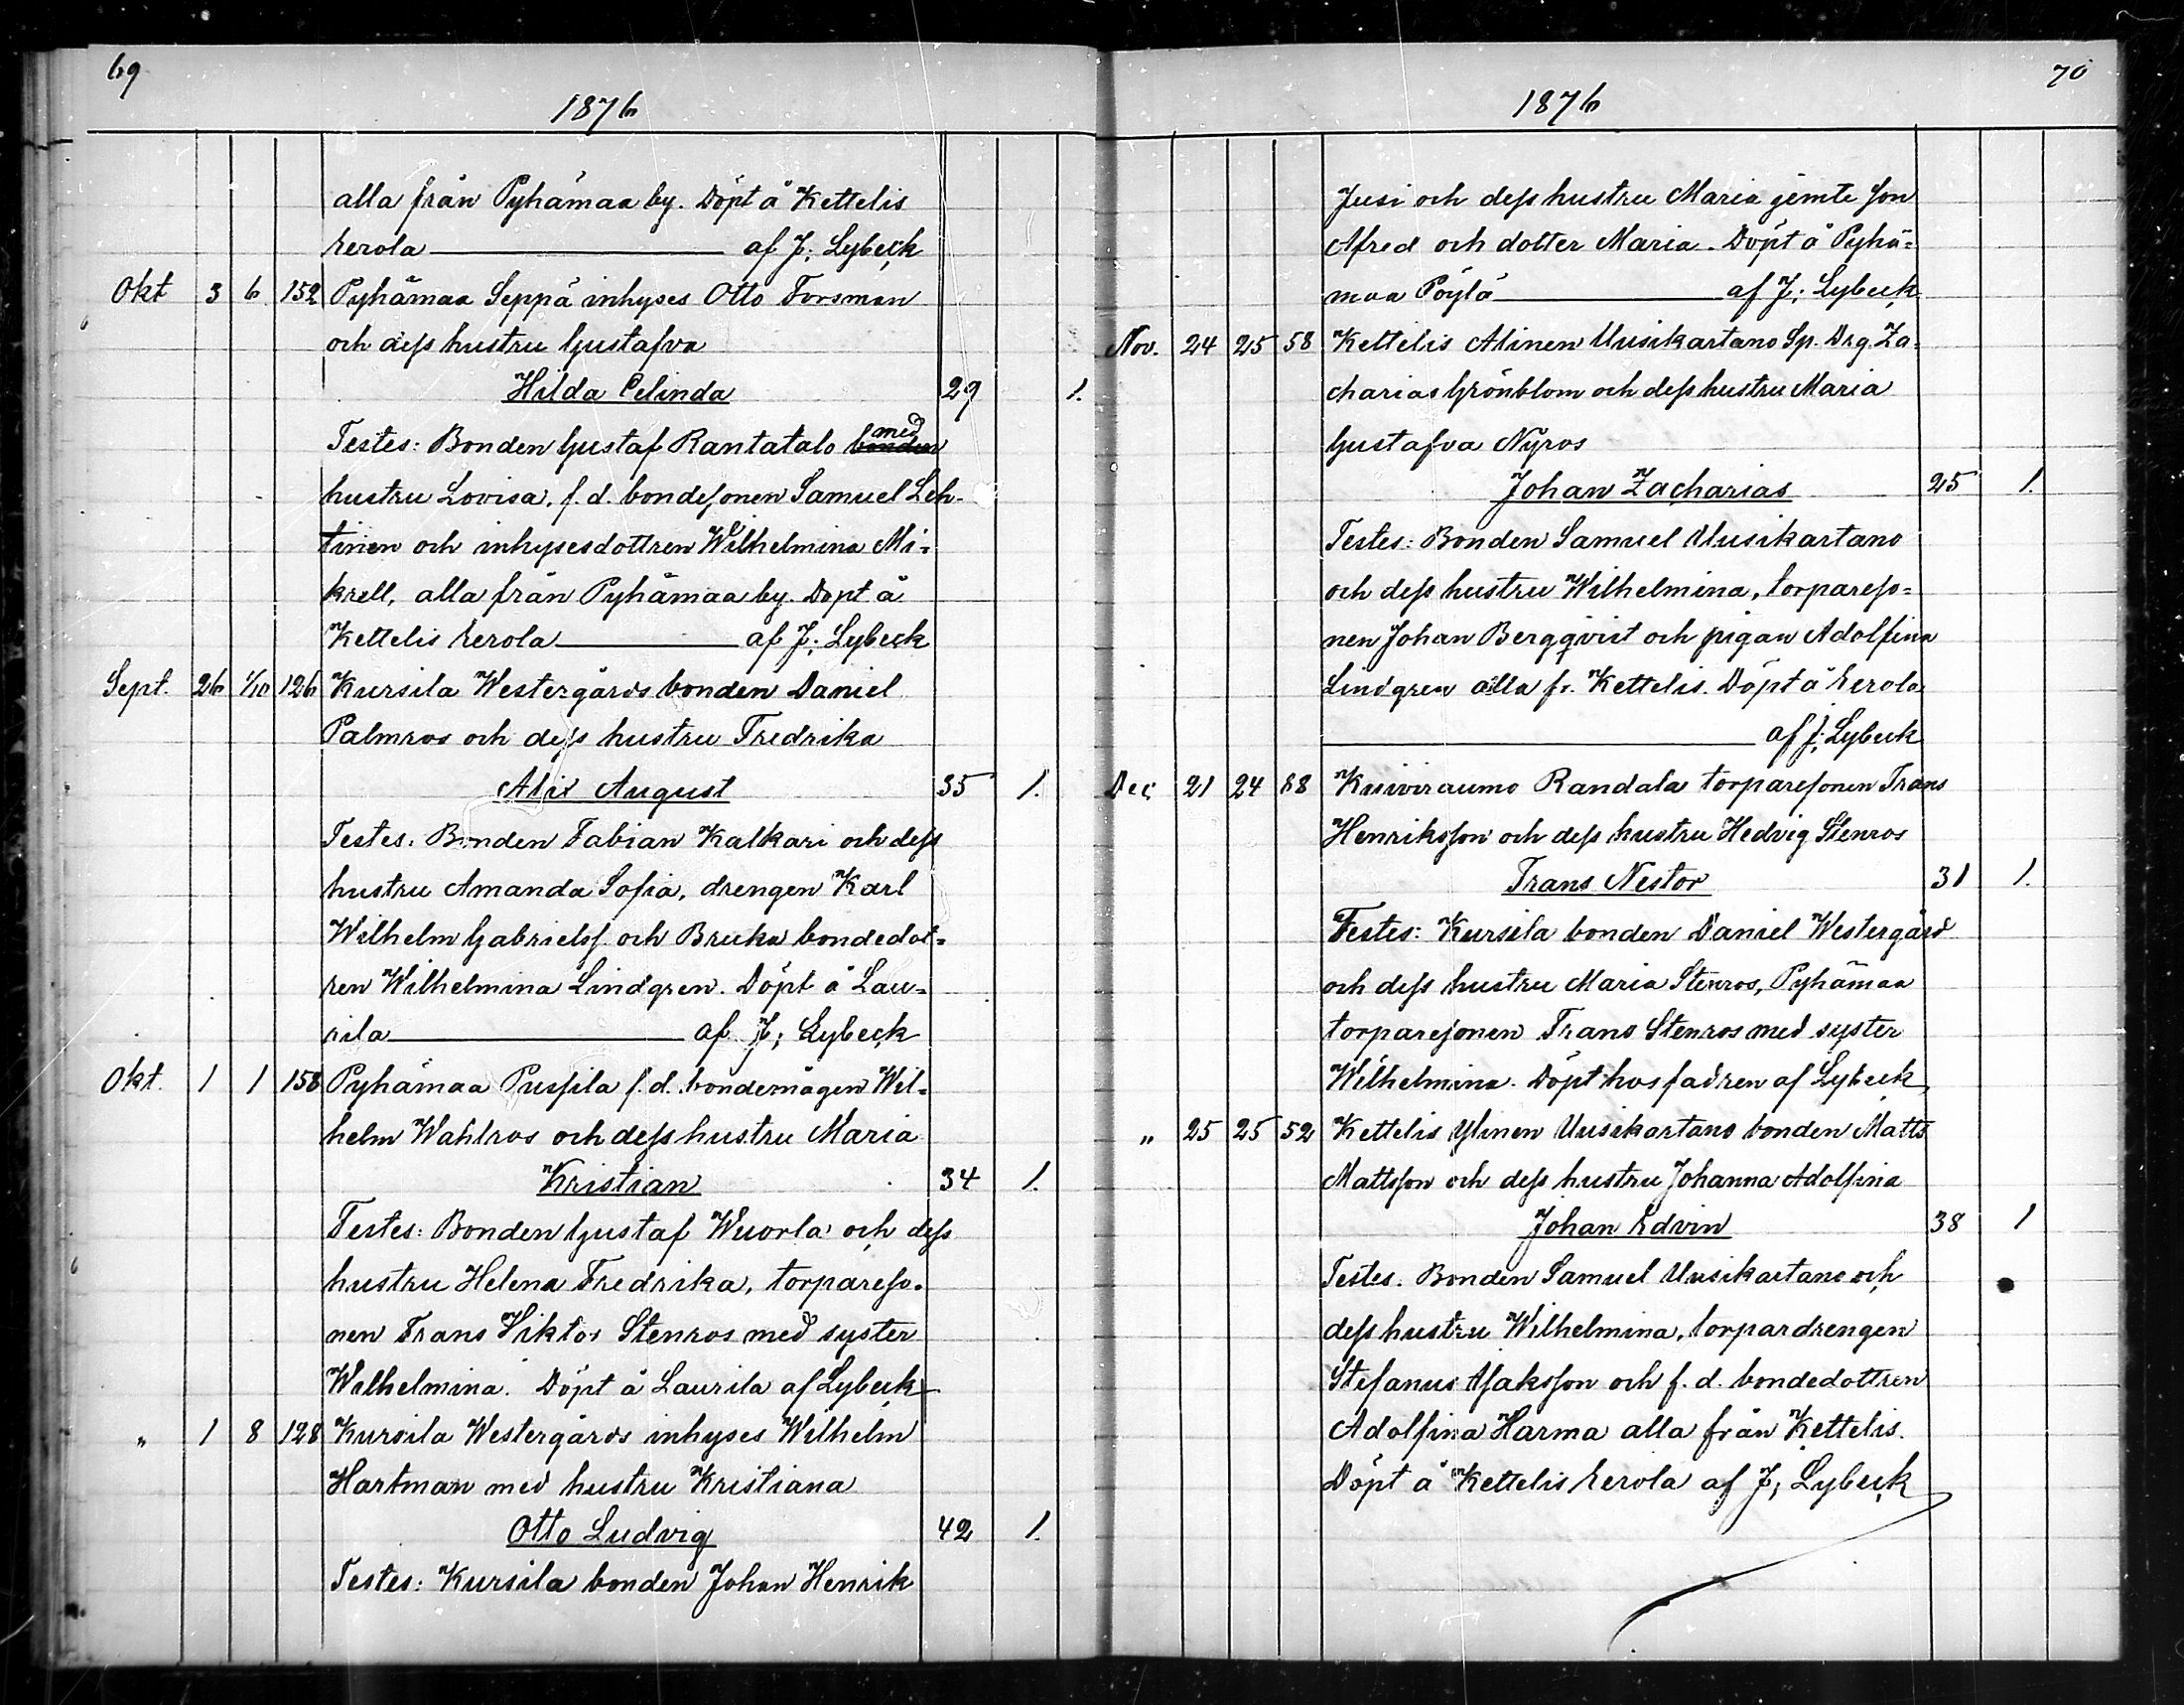 69
1876
alla från Pyhämaa by. Döpt å Kettelis
Eerola — af J; Lybeck
Okt 3 6 152 Pyhämaa Seppä inhyses Otto Forsman
och dess hustru Gustafva
Hilda Celinda 29 1.
Testes: Bonden Gustaf Rantatalo bonden med
hustru Lovisa, f. d. bondesonen Samuel Leh-
tinen och inhysesdottren Wilhelmina Mi-
krell, alla från Pyhämaa by. Döpt å
Kettelis Eerola — af J; Lybeck
Sept. 26 1/10 126 Kursila Westergårds bonden Daniel
Palmros och dess hustru Fredrika
Alix August 35 1.
Testes. Bonden Fabian Kalkari och dess
hustru Amanda Sofia, drengen Karl
Wilhelm Gabrielss. och Bruka bondedot-
ren Wilhelmina Lindgren. Döpt å Lau-
rila — af J; Lybeck
Okt. 1 1 158 Pyhämaa Pussila f. d. bondemågen Wil-
helm Wahlros och dess hustru Maria
Kristian 34 1.
Testes: Bonden Gustaf Wuorla och dess
hustru Helena Fredrika, torpareso-
nen Frans Viktor Stenros med syster
Wilhelmina. Döpt å Laurila af Lybeck
" 1 8 128 Kursila Westergårds inhyses Wilhelm
Hartman med hustru Kristiana
Otto Ludvig 42 1.
Testes: Kursila bonden Johan Henrik
70
1876
Jusi och dess hustru Maria jemte son
Afred och dotter Maria. Döpt å Pyhä-
maa Pöylä — af J; Lybeck
Nov. 24 25 58 Kettelis Alinen Uusikartano Sp. Drg. Za-
charias Grönblom och dess hustru Maria
Gustafva Nyros
Johan Zacharias 25 1.
Testes: Bonden Samuel Uusikartano
och dess hustru Wilhelmina, torpareso-
nen Johan Bergqvist och pigan Adolfina
Lindgren alla fr. Kettelis. Döpt å Eerola
— af J; Lybeck
Dec 21 24 88 Kuiviraumo Randala torparesonen Frans
Henriksson och dess hustru Hedvig Stenros
Frans Nestor 31 1.
Testes: Kursila bonden Daniel Westergård
och dess hustru Maria Stenros, Pyhämaa
torparesonen Frans Stenros med syster
Wilhelmina. Döpt hos fadren af Lybeck
" 25 25 52 Kettelis Ylinen Uusikartano bonden Matts
Mattsson och dess hustru Johanna Adolfina
Johan Edvin 38 1
Testes. Bonden Samuel Uusikartano och
dess hustru Wilhelmina, torpardrengen
Stefanus Isaksson och f. d. bondedottren
Adolfina Harma alla från Kettelis.
Döpt å Kettelis Eerola af J; Lybeck